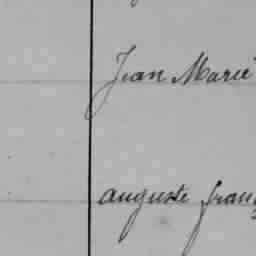 Jean Marie
auguste fran